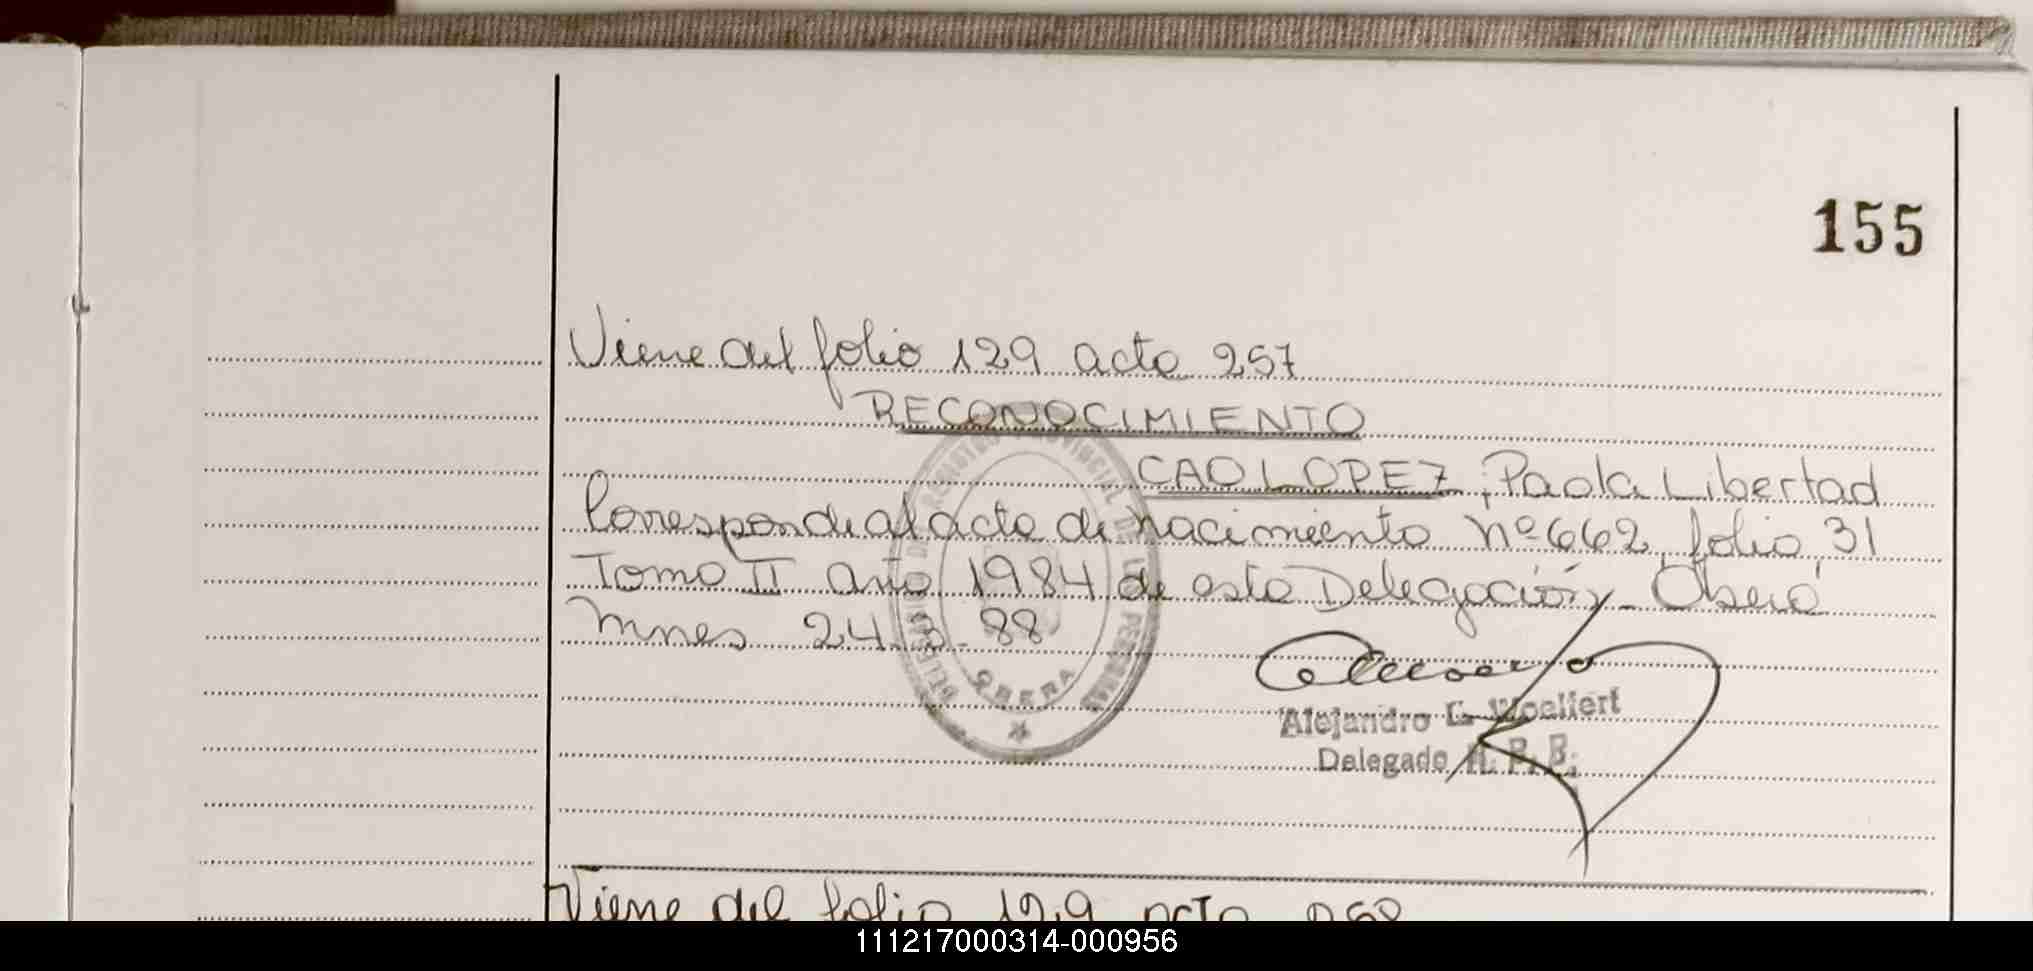 155
Viene del folio 129 acta 257
RECONOCIMIENTO
CAO LOPEZ, Paola Libertad
Corresponde al acta de nacimiento Nº 662, folio 31
Tomo II año 1984 de esta Delegación, Oberá
Mnes 24. 3. 88
OBERA
Alejandro G. Woelfert
Delegado R. P. P.
Viene del folio 129 acta 258
111217000314-000956